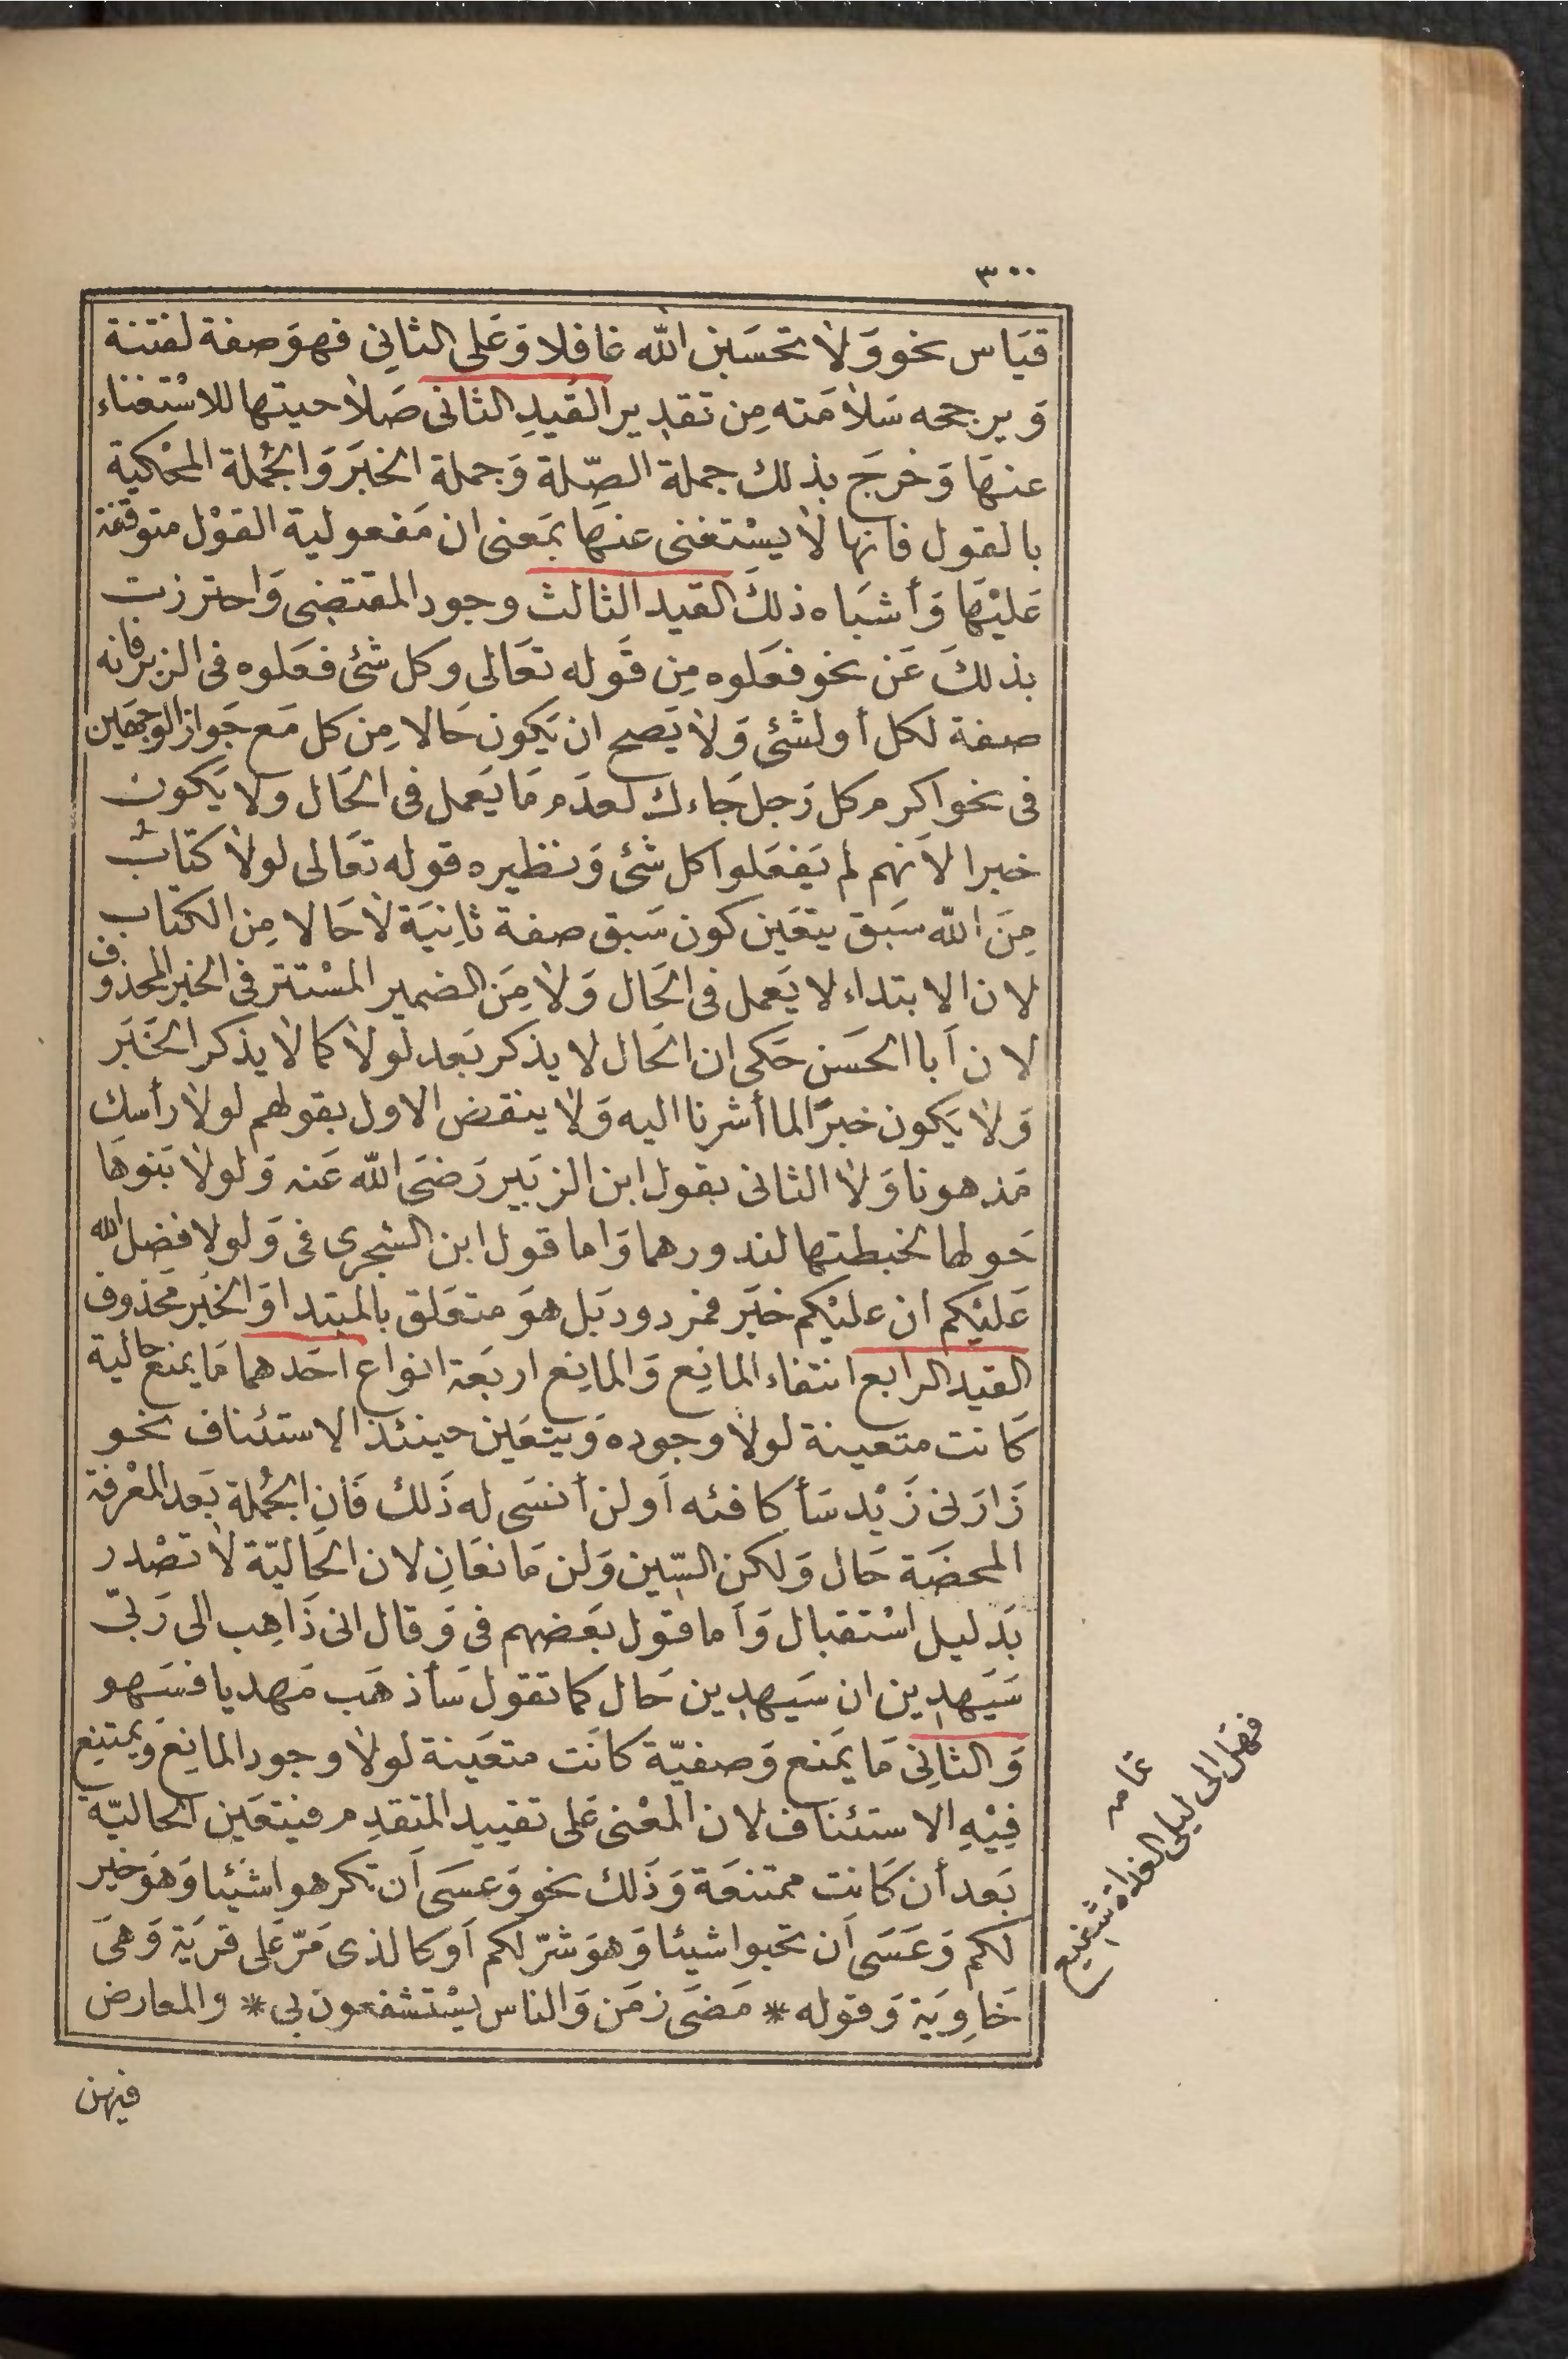 ٣٠٠
قيَاس نحو وَلاٰ تحسَبن الله غافلا وَعَلى الثاني فهوَ صفة لفتنة
وَيرجحه سَلاٰمَته مِن تقدير القيدِ الثانى صَلاٰحيتها للاسْتغناء
عنهَا وَخرجَ بذلك جملة الصِّلة وَجملة الخبَر وَالجُملة المحْكية
بالقول فانها لاٰ يسْتغنى عنهَا بمَعنى ان مَفعولية القوْل متوقفة
عَليْهَا وَأشبَاه ذلكَ القيد الثالث وجود المقتضِى وَاحترزت
بذلكَ عَن نحو فعَلوه مِن قَوله تعَالى وكل شئ فعَلوه فى الزبر فانه
صفة لكل أو لشئ وَلاٰ يَصح ان يَكون حَالا مِن كل مَع جَواز الوجهَين
فى نحو اكرم كل رَجل جَاءك لعدَم مَا يَعمل فى الحَال ولا يَكون
خبرا لاَنهم لم يَفعَلوا كل شئ وَنظيره قوله تعَالى لولاٰ كتَابٌ
مِنَ الله سَبق يتعَين كون سَبق صفة ثانِيَة لاٰ حَالا مِن الكتاب
لان الابتداء لا يَعمل فى الحَال وَلاٰ مِنَ الضمير المسْتتر فى الخبر المحذوف
لان اَبا الحَسَن حَكى ان الحَال لا يذكر بَعد لولاٰ كما لاٰ يذكر الخَبَر
وَلاٰ يَكون خبرًا لما أشرنا اليه وَلاٰ ينقض الاول بقولهم لولاٰ رأسك
مَدهونا وَلاٰ الثانى بقول ابن الزبَير رَضىَ الله عَنه وَلولاٰ بَنوهَا
حَولها لخبطتها لندورهما وَاما قول ابن الشجرى فى وَلولا فضل الله
عَليْكم ان عليْكم خبَر فمردود بَل هوَ متعَلق بالمبتدا وَالخبَر محَذوف
القيد الرابع انتفاء المانِع وَالمانِع اربَعة انواع اَحَدهما مَا يمنع حالية
كَانت متعينة لولاٰ وجوده وَيتعَين حينئذ الاستئناف نحو
زَارَنى زَيْد سَأكافئه اَو لن أنسَى له ذَلك فَان الجُملة بَعد المعْرفة
المحضَة حَال وَلكن السِّين وَلن مَانعَانِ لان الحَاليّة لاٰ تصْدر
بَدليل اسْتقبال وَأَما قول بَعَضهم فى وَقال انى ذَاهِب الى رَبّى
سَيَهدِين ان سَيهدِين حَال كما تقول سَأذهَب مَهديا فسَهو
وَالثانِى مَا يمَنع وَصفيّة كَانَت متعَينة لولاٰ وجود المانِع وَيمتنِع
فِيْهِ الاستئنَاف لان المعْنى عَلى تقييد المتقدِم فيتعَين الحاليّه
بَعد أن كَانت ممتنعَة وَذَلك نحو وَعسَى اَن تكرهوا شَيْئا وَهوَ خير
لكم وَعَسَى اَن تحبوا شيئا وَهوَ شرّ لكم اَو كالذى مَرّ عَلى قريَة وَهىَ
خَاوِيَة وَقوله * مَضىَ زمَن وَالناس يسْتشفعون بى * والمعارض
فيهن
تمامه
فهل لى الى ليلى الغداة شفيع